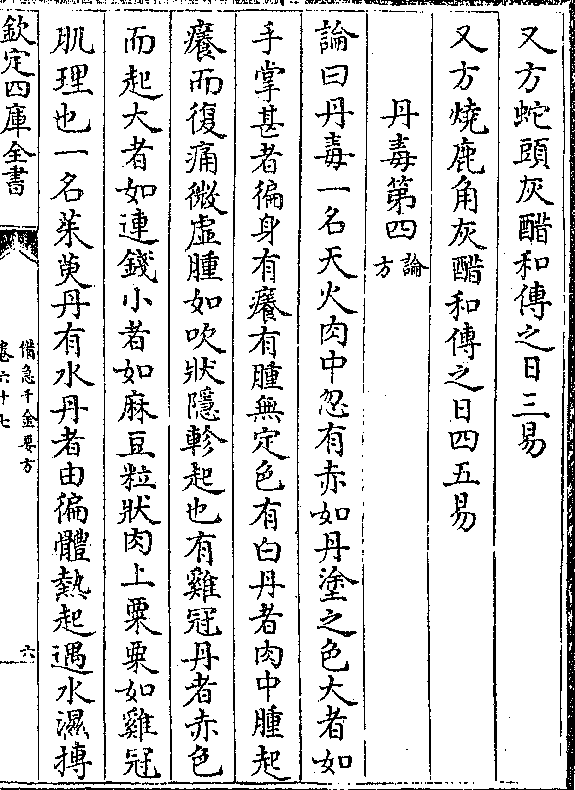 又方蛇頭灰醋和傅之日三易
又方燒鹿角灰醋和傅之日四五易
丹毒第四論方
論曰丹毒一名天火肉中忽有赤如丹塗之色大者如
手掌甚者徧身有癢有腫無定色有白丹者肉中腫起
癢而復痛微虛腫如吹狀隱軫起也有雞冠丹者赤色
而起大者如連錢小者如麻豆粒狀肉上粟粟如雞冠
肌理也一名茱萸丹有水丹者由徧體熱起遇水濕摶
欽定四庫全書
備急千金要方
卷六十七
六